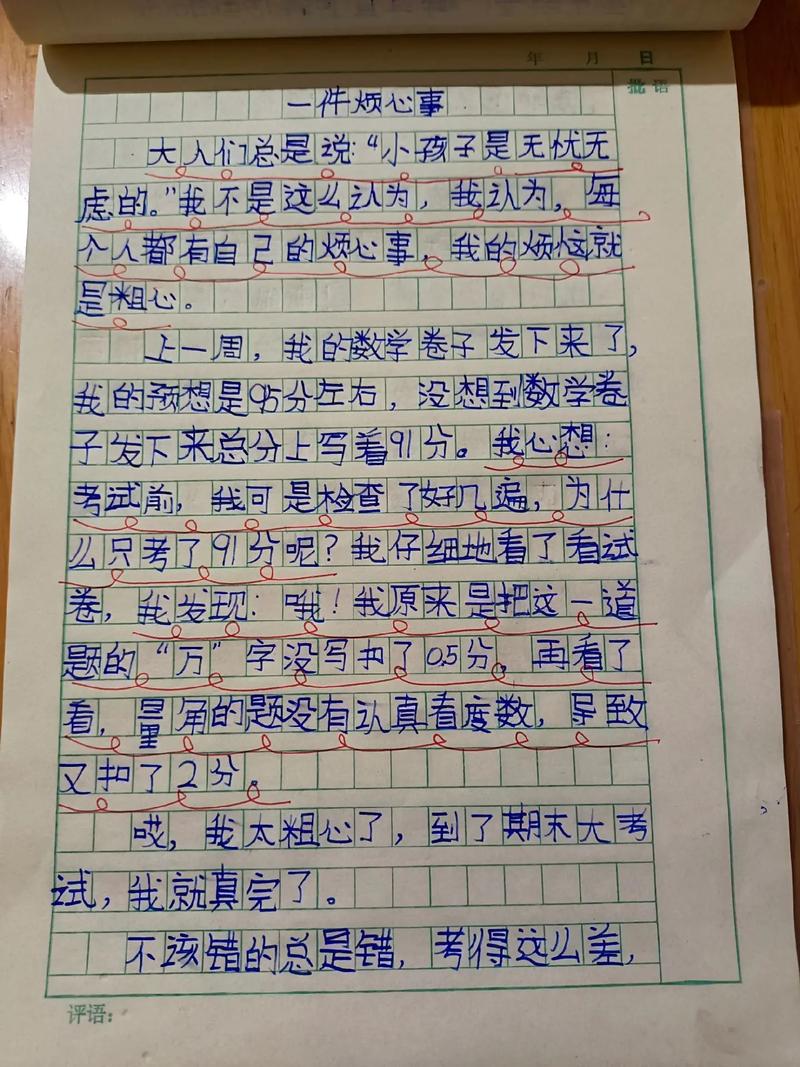 年 月 日
批语
一件烦心事
大人们总是说：“小孩子是无忧无
虑的。”我不是这么认为，我认为，每
个人都有自己的烦心事，我的烦恼就
是粗心。
上一周，我的数学卷子发下来了，
我的预想是95分左右，没想到数学卷
子发下来总分上写着91分。我心想：
考试前，我可是检查了好几遍，为什
么只考了91分呢？我仔细地看了看试
卷，我发现：哦！我原来是把这一道
题的“万”字没写扣了0.5分，再看了
看，量角的题没有认真看度数，导致
又扣了2分。
哎，我太粗心了，到了期末大考
试，我就真完了。
不该错的总是错，考得这么差，
评语：